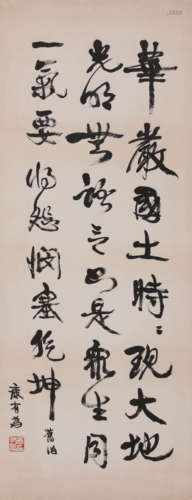 華嚴國土時〻現大地
光明無語言只是眾生同
一氣要將悲憫塞乾坤
舊
康有為